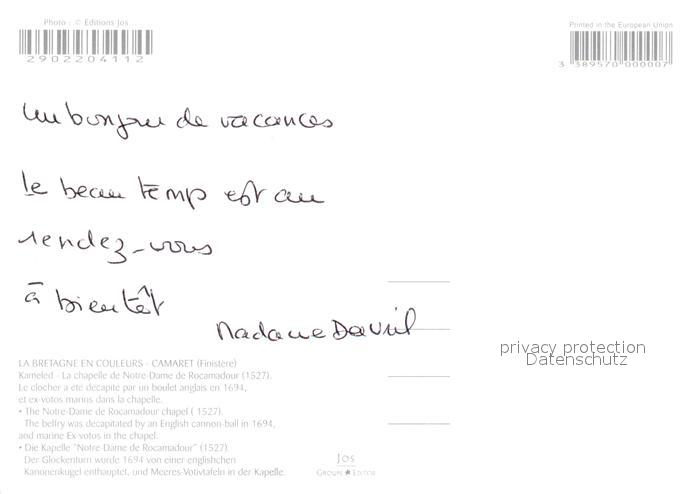 Photo : © Editions Jos
2902204112
Printed in the European Union
3 389570 000007
Un bonjour de vacances
le beau temps est au
rendez-vous
à bientôt
Madame Davril
privacy protection
Datenschutz
LA BRETAGNE EN COULEURS - CAMARET (Finistère)
Kameled - La chapelle de Notre-Dame de Rocamadour (1527).
Le clocher a été décapité par un boulet anglais en 1694,
et ex-votos marins dans la chapelle.
• The Notre-Dame de Rocamadour chapel ( 1527).
The belfry was decapitated by an English cannon-ball in 1694,
and marine Ex-votos in the chapel.
• Die Kapelle "Notre-Dame de Rocamadour" (1527).
Der Glockenturm wurde 1694 von einer englischchen
Kanonenkugel enthauptet, und Meeres-Votivtafeln in der Kapelle.
JOS
GROUPE EDITOR